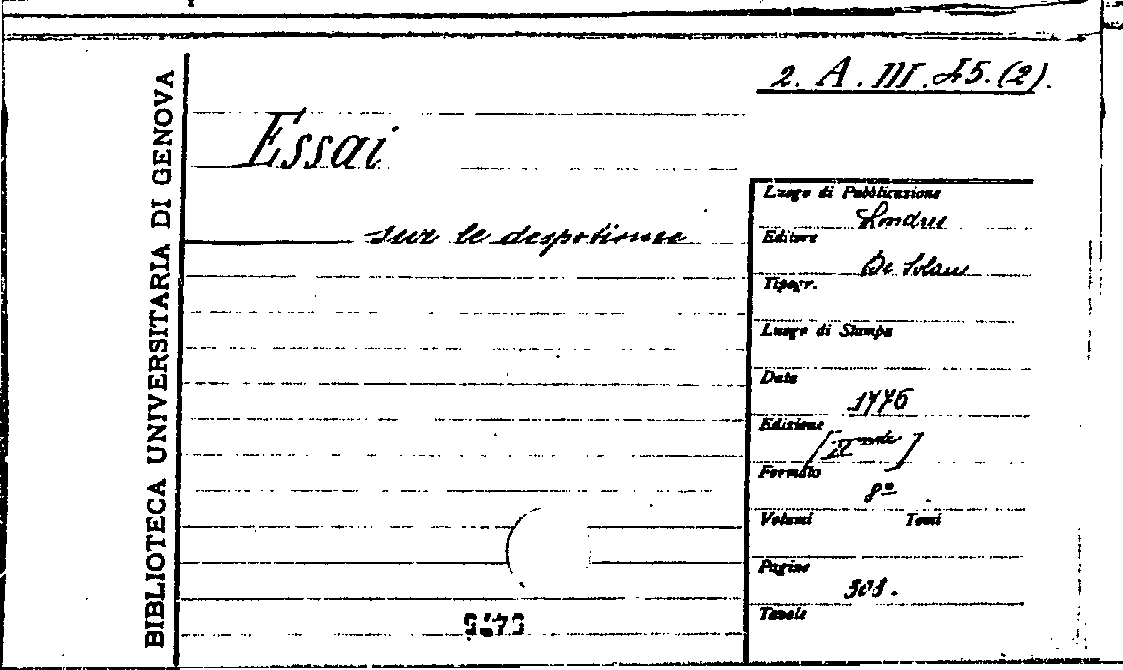 2. A. III. 45. (2).
BIBLIOTECA UNIVERSITARIA DI GENOVA
Essai
sur le despotisme
Luogo di Pubblicazione
Londres
Editore
De
Tipogr.
Luogo di Stampa
Data
1776
Edizione
Formato
8º
Volumi Tomi
Pagine
Tavole